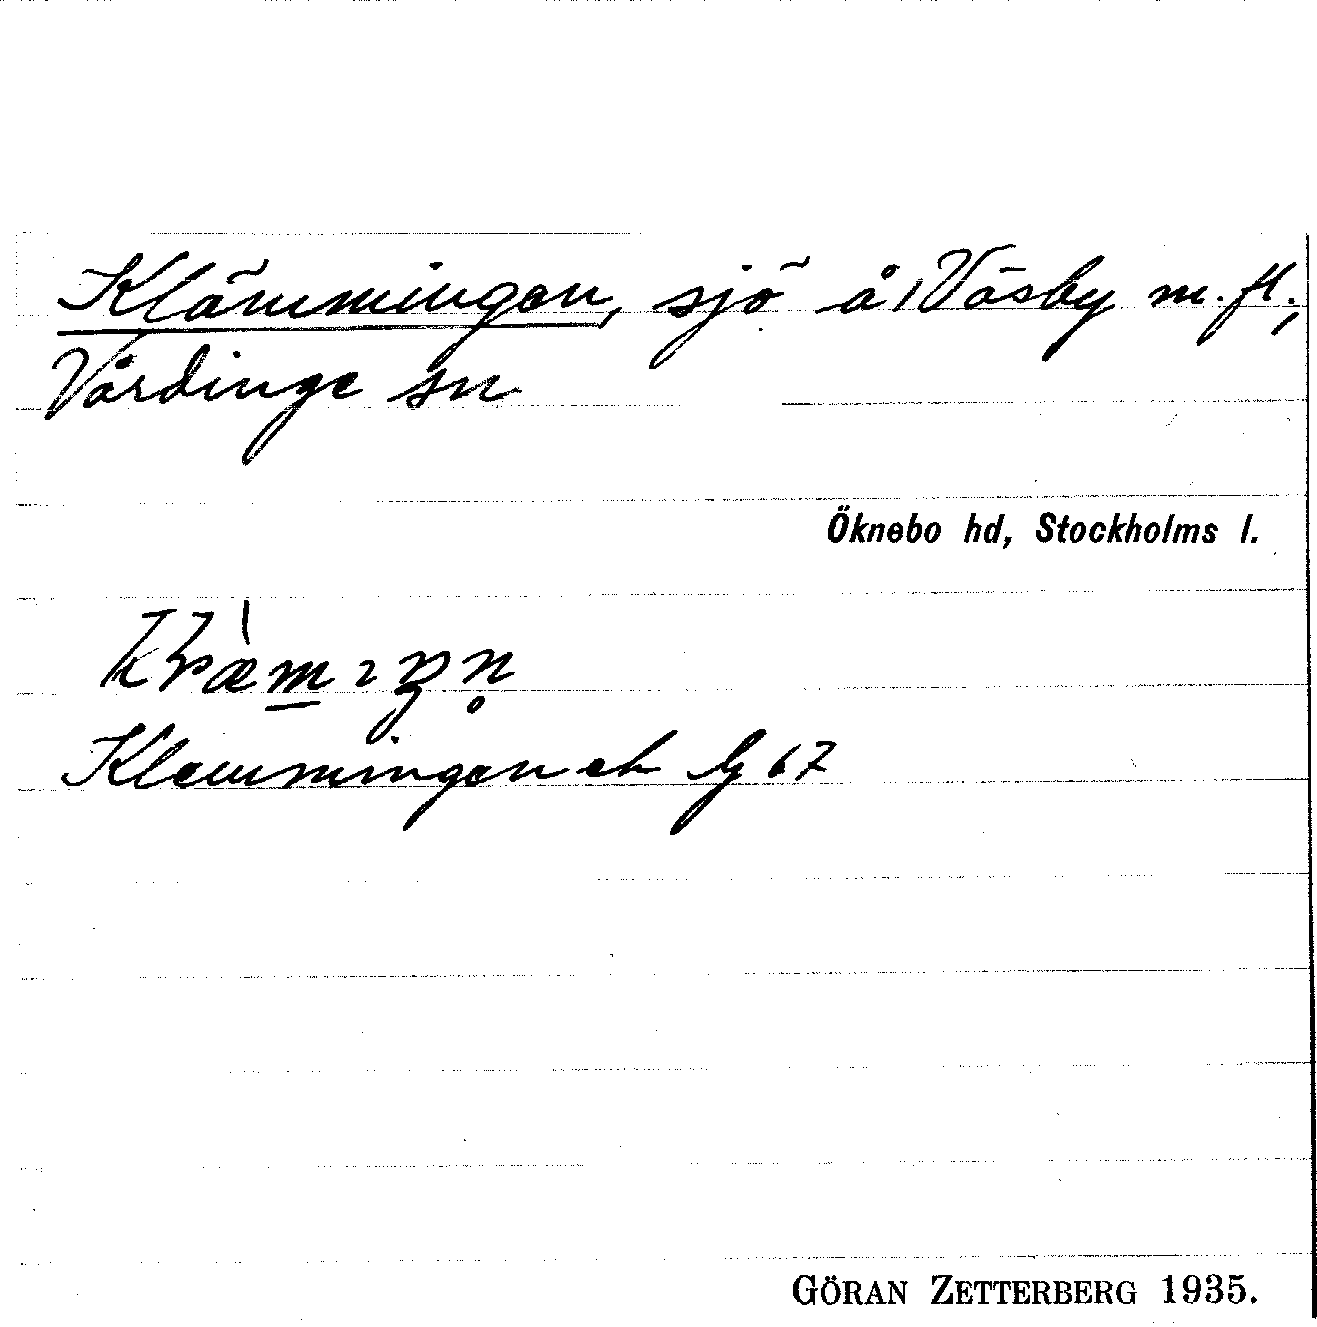 Klämmingen, sjö å Väsby m. fl.,
Vårdinge sn
Öknebo hd, Stockholms l.
Klemmingen ek bg 67
GÖRAN ZETTERBERG 1935.